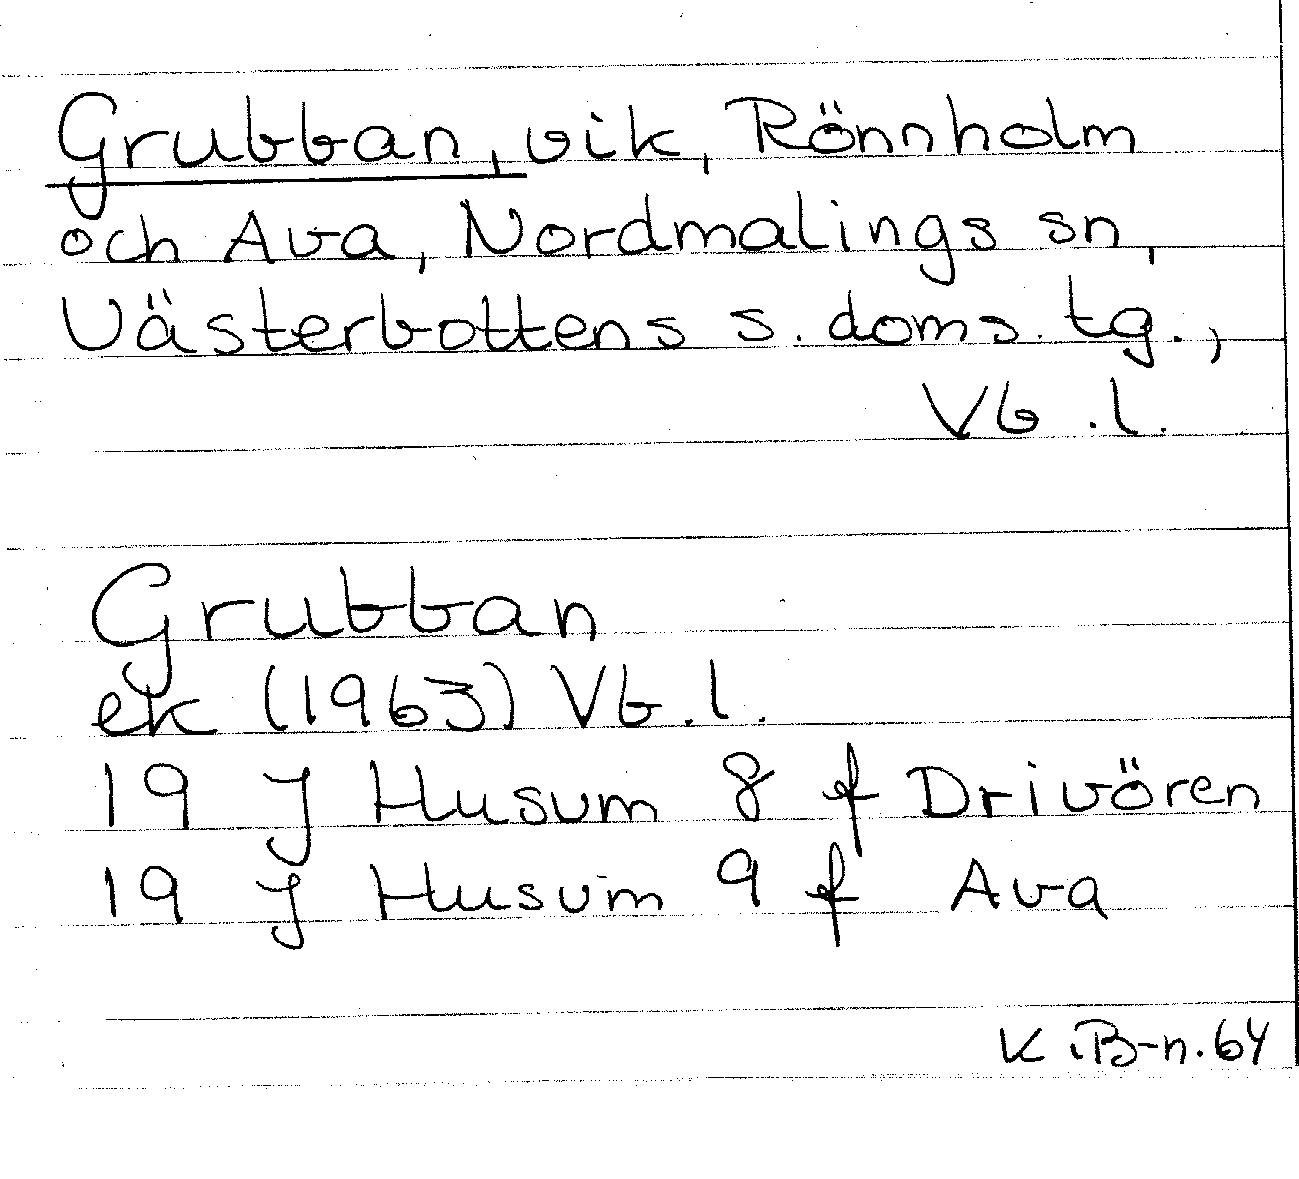 Grubban, vik, Rönnholm
och Ava, Nordmalings sn,
Västerbottens s. doms. tg.,
Vb. l.
Grubban
ek (1963) Vb. l.
19 J Husum 8 f Drivören
19 J Husum 9 f Ava
K. B-n. 64